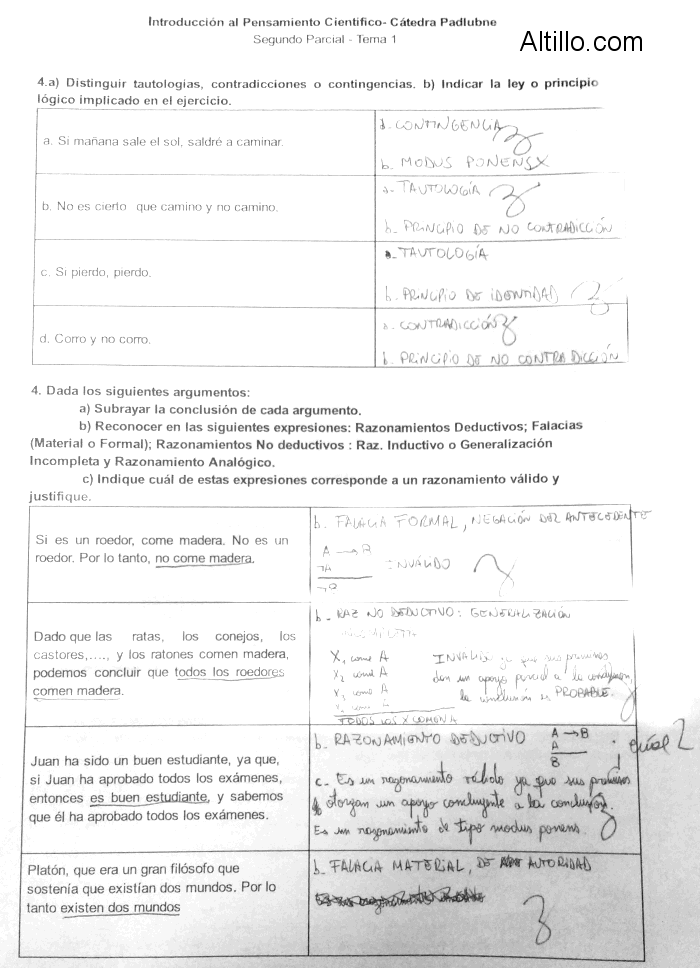 Introducción al Pensamiento Científico- Cátedra Padlubne
Segundo Parcial - Tema 1
Altillo.com
4.a) Distinguir tautologías, contradicciones o contingencias. b) Indicar la ley o principio
lógico implicado en el ejercicio.
a. Si mañana sale el sol, saldré a caminar.
a. CONTINGENCIA
b. MODUS PONENS X
b. No es cierto que camino y no camino.
a- TAUTOLOGÍA
b- PRINCIPIO DE NO CONTRADICCIÓN
c. Si pierdo, pierdo.
a- TAUTOLOGÍA
b. PRINCIPIO DE IDENTIDAD
d. Corro y no corro.
a- CONTRADICCIÓN
b. PRINCIPIO DE NO CONTRADICCIÓN
4. Dada los siguientes argumentos:
a) Subrayar la conclusión de cada argumento.
b) Reconocer en las siguientes expresiones: Razonamientos Deductivos; Falacias
(Material o Formal); Razonamientos No deductivos : Raz. Inductivo o Generalización
Incompleta y Razonamiento Analógico.
c) Indique cuál de estas expresiones corresponde a un razonamiento válido y
justifique.
Si es un roedor, come madera. No es un
roedor. Por lo tanto, no come madera.
b. FALACIA FORMAL, NEGACIÓN DEL ANTECEDENTE
A → B
¬A
¬B
INVÁLIDO
Dado que las ratas, los conejos, los
castores,...., y los ratones comen madera,
podemos concluir que todos los roedores
comen madera.
b- RAZ NO DEDUCTIVO: GENERALIZACIÓN
X1 come A
X2 come A
X3 come A
come A
TODOS LOS X COMEN A
INVALIDO ya que sus premisas
dan un apoyo parcial a la conclusión,
la conclusión es PROBABLE.
Juan ha sido un buen estudiante, ya que,
si Juan ha aprobado todos los exámenes,
entonces es buen estudiante, y sabemos
que él ha aprobado todos los exámenes.
b. RAZONAMIENTO DEDUCTIVO
A → B
A
B
¿cuál?
c. Es un razonamiento válido ya que sus premisas
otorgan un apoyo concluyente a la conclusión.
Es un razonamiento de tipo modus ponens.
Platón, que era un gran filósofo que
sostenía que existían dos mundos. Por lo
tanto existen dos mundos
b. FALACIA MATERIAL, DE AUTORIDAD